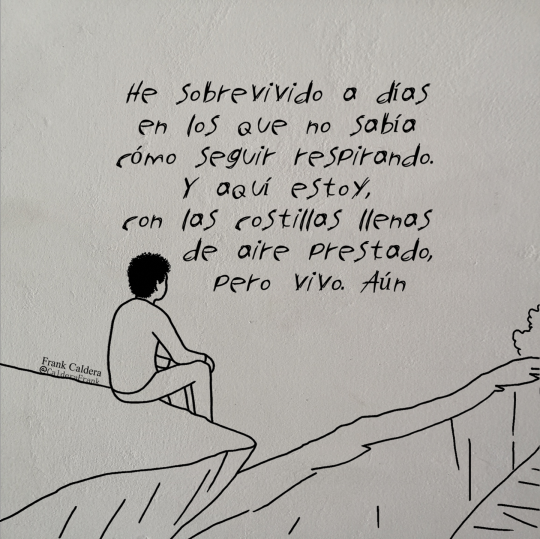 He sobrevivido a días
en los que no sabía
cómo seguir respirando.
Y aquí estoy,
con las costillas llenas
de aire prestado,
pero vivo. Aún
Frank Caldera
@CalderaFrank